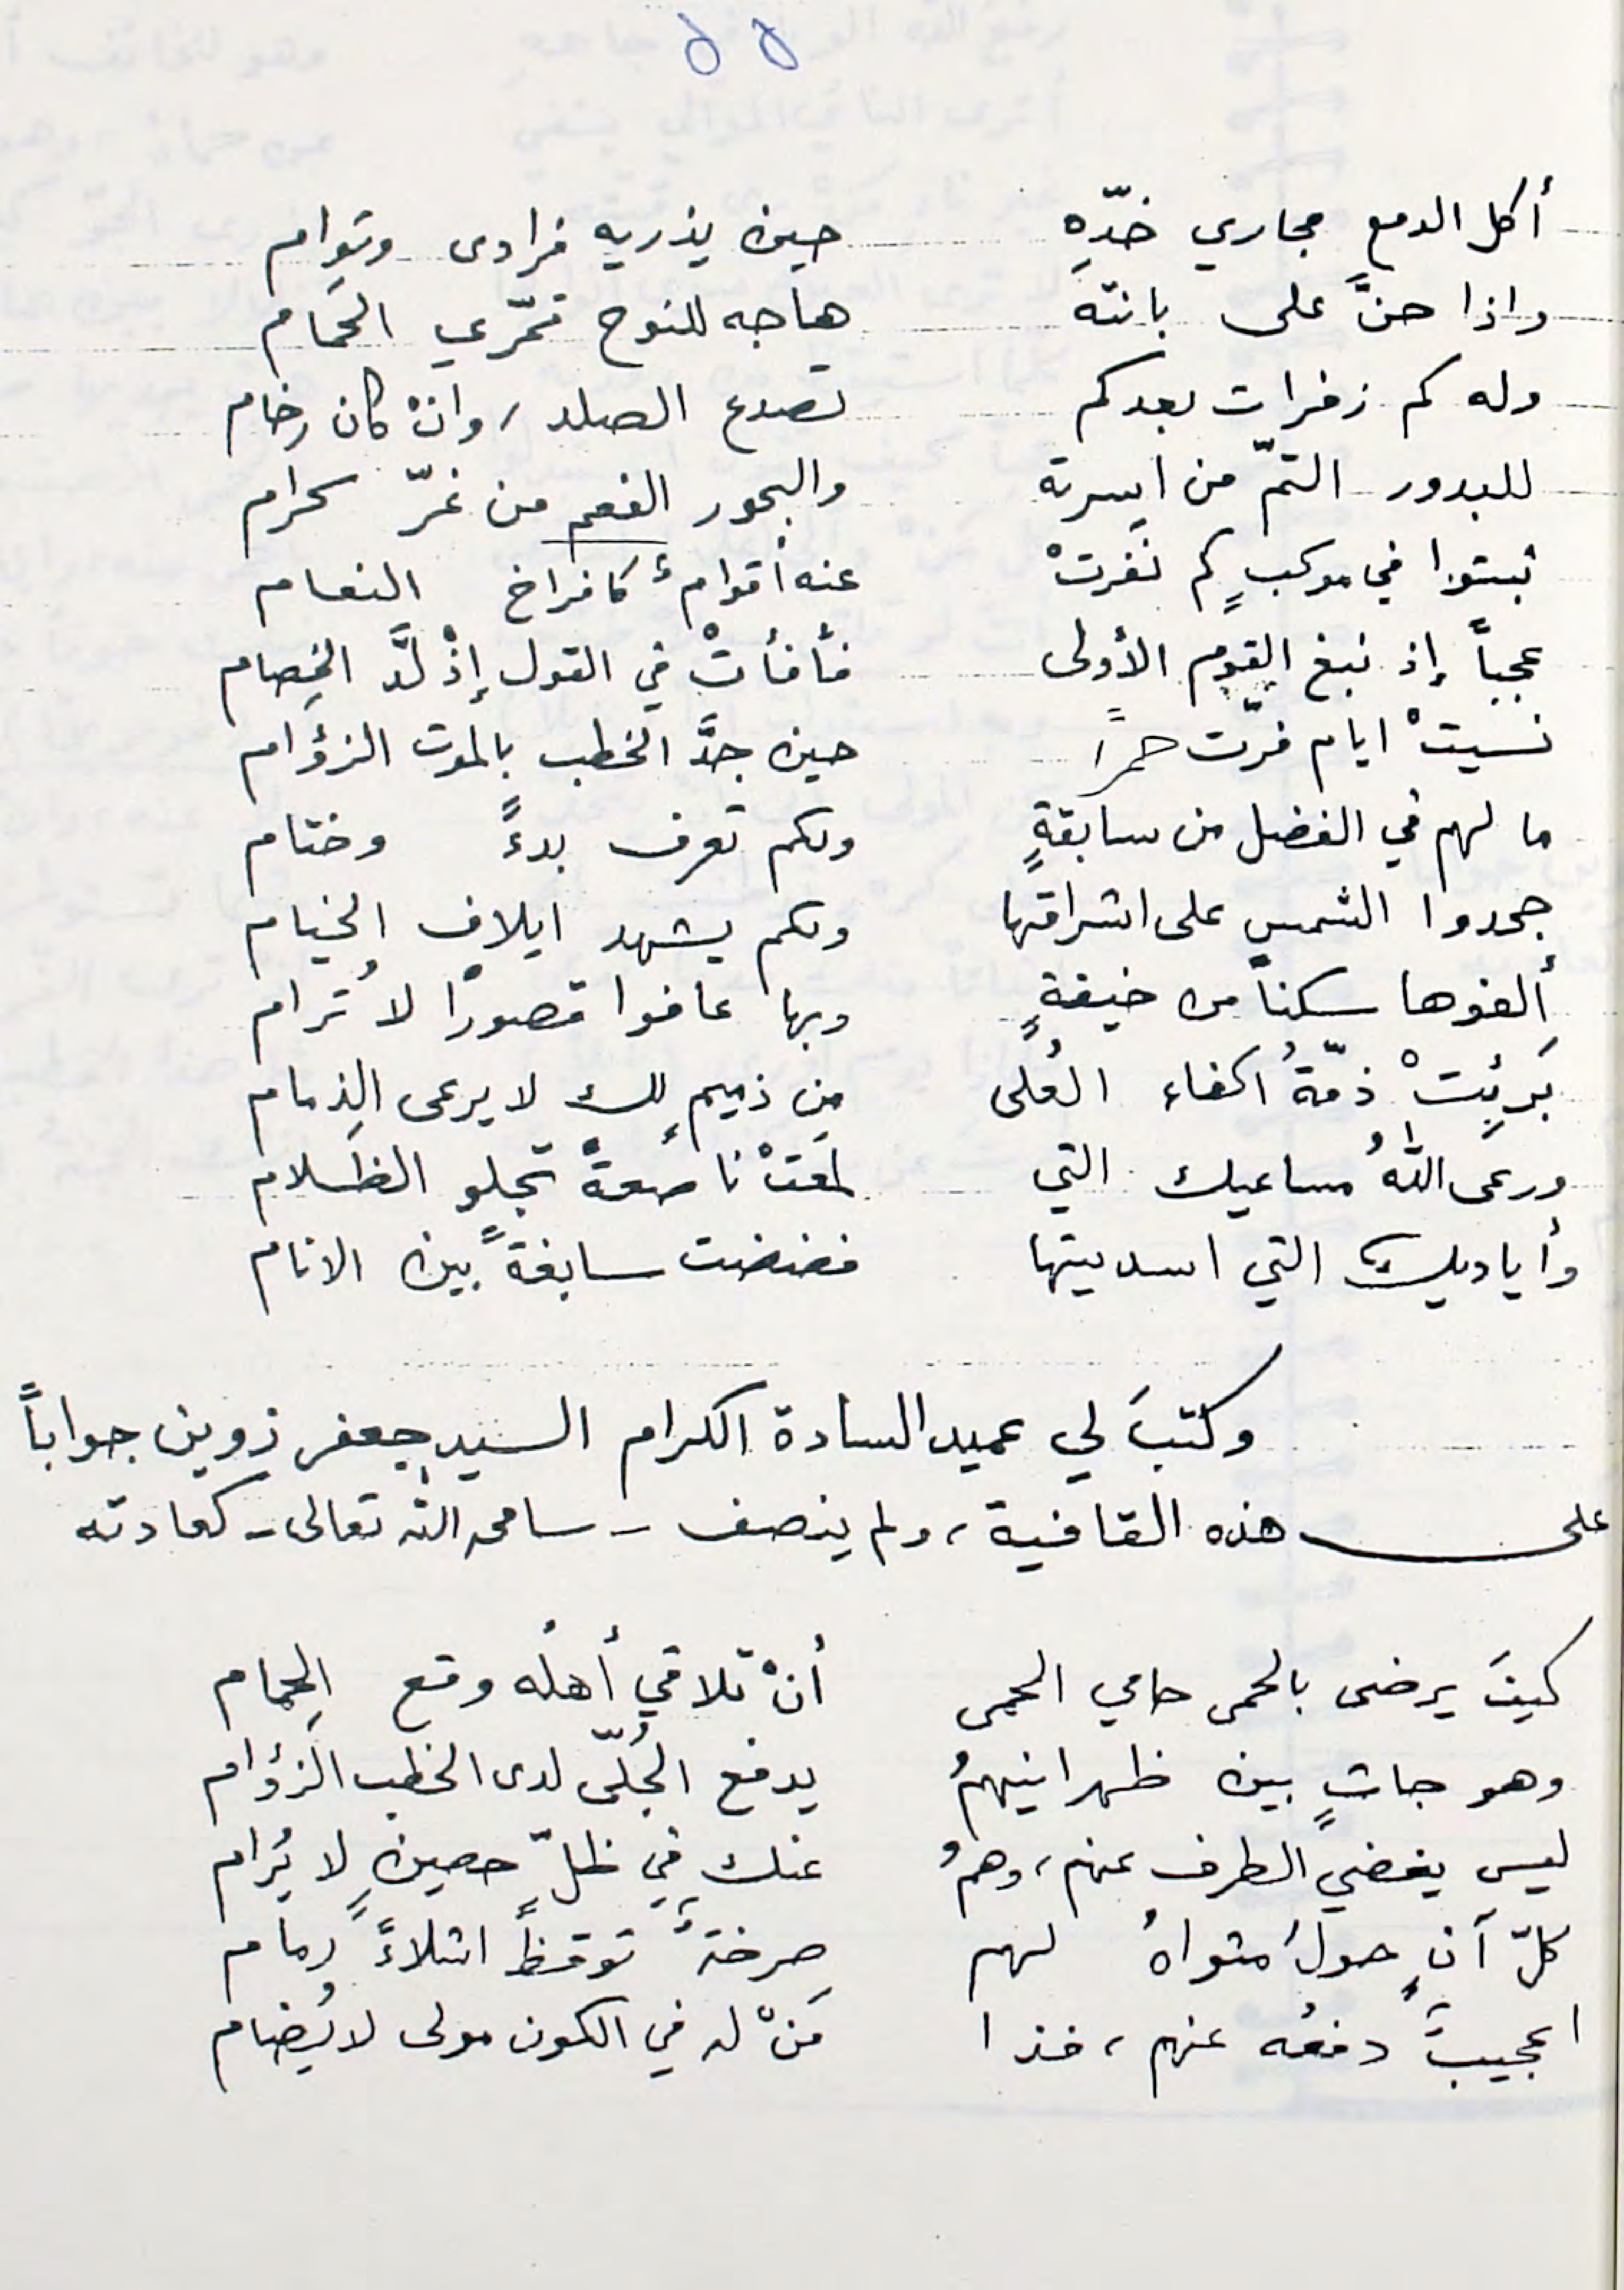 ٥٥
أكل الدمع مجاري خدّهِ حين يذريه فرادى وتوام
واذا حنَّ على بانته هاجه للنوح قمّري الحَمام
وله كم زفرات بعدكم تصدع الصلد، وانْ كان رخام
للبدور التمّ من اسرته والبحور الفعم من غرّ كرام
ثبتوا في موكبٍ كم نفرتْ عنه أقوامٌ كافراخ النعام
عجباً إذ نبغ القوم الأولى فأفأتْ في القول إذْ لَدَّ الخِصام
نسيتْ ايام فرّت حمراً حين جدَّ الخطب بالموت الزؤام
ما لهم في الفضل من سابقةٍ وبكم تعرف بدءً وختام
جحدوا الشمس على اشراقها وبكم يشهد ايلاف الخيام
ألفوها سكناً من خيفةٍ وبها عافوا قصورًا لا تُرام
بَرِئتْ ذمّةُ اكفاء العُلى من ذميمٍ لك لا يرعى الذِمام
ورعى اللهُ مساعيك التي لمعَتْ ناصعةً تجلو الظَلام
وأياديك التي اسديتها فضفضت سابغةً بين الانام
وكتبَ لي عميد السادة الكرام السيد جعفر زوين جواباً
على هذه القافية، ولم ينصف - سامحه الله تعالى - كعادته
كيفَ يرضى بالحمى حامي الحمى أنْ تلاقي أهلُه وقع الحِمام
وهو جاثٍ بين ظهرانيهمُ يدفع الجُلّى لدى الخطب الزؤام
ليس يغضي الطرف عنهم، وهمُ عنك في ظلٍّ حصينٍ لا يُرام
كلّ آنٍ حولَ مثواهُ لهم صرخةٌ توقظُ اشلاءً رمام
اعجيبٌ دفعُه عنهم، فذا مَنْ له في الكون مولى لا يُضام